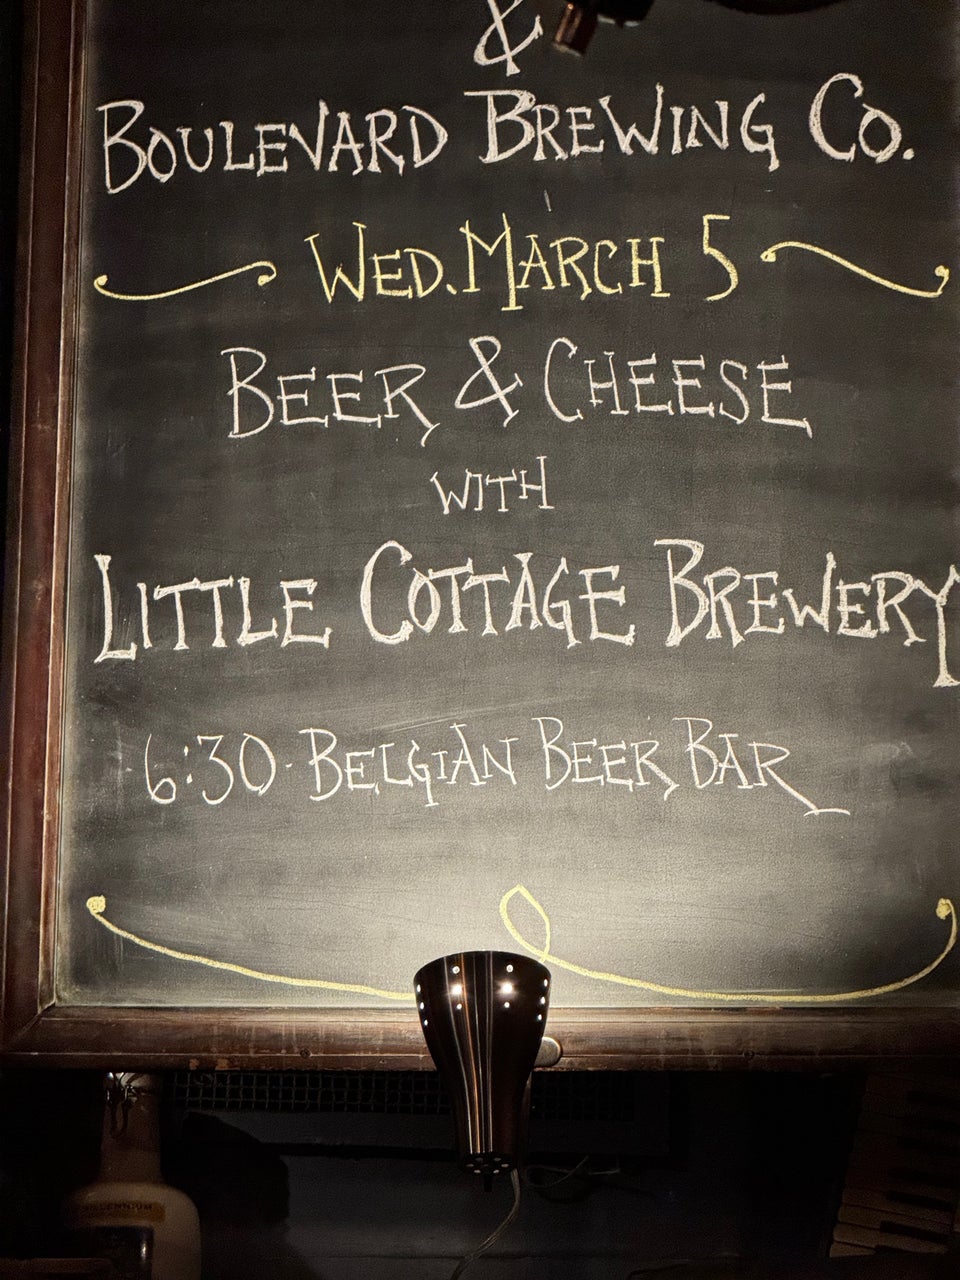 &
BOULEVARD BREWING CO.
WED. MARCH 5
BEER & CHEESE
WITH
LITTLE COTTAGE BREWERY
6:30 - BELGIAN BEER BAR
MILLENNIUM